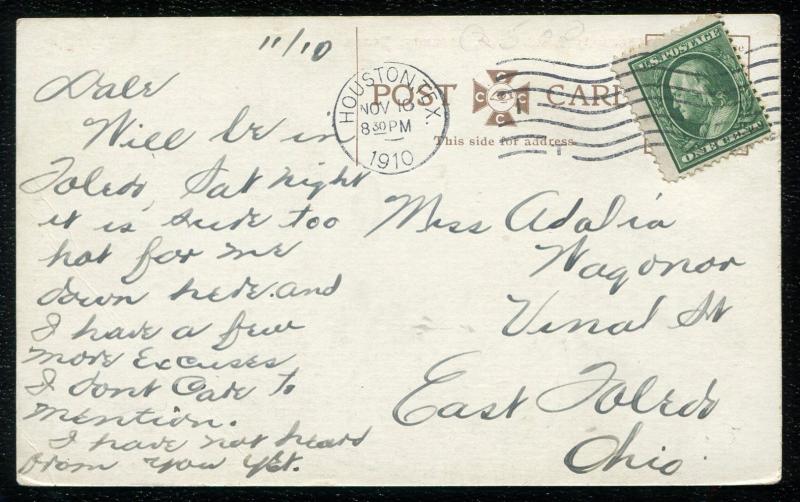 11/10
Dale
Will be in
Toledo, Sat night
it is sure too
hot for me
down here. and
I have a few
more Excuses
I dont Care to
mention.
I have not heard
from you yet.
HOUSTON, TEX.
NOV 10
8 30 PM
1910
POST CARD
C C C
This side for address
U.S. POSTAGE
ONE CENT
Miss Adalia
Wagonor
Vinal St
East Toledo
Ohio.